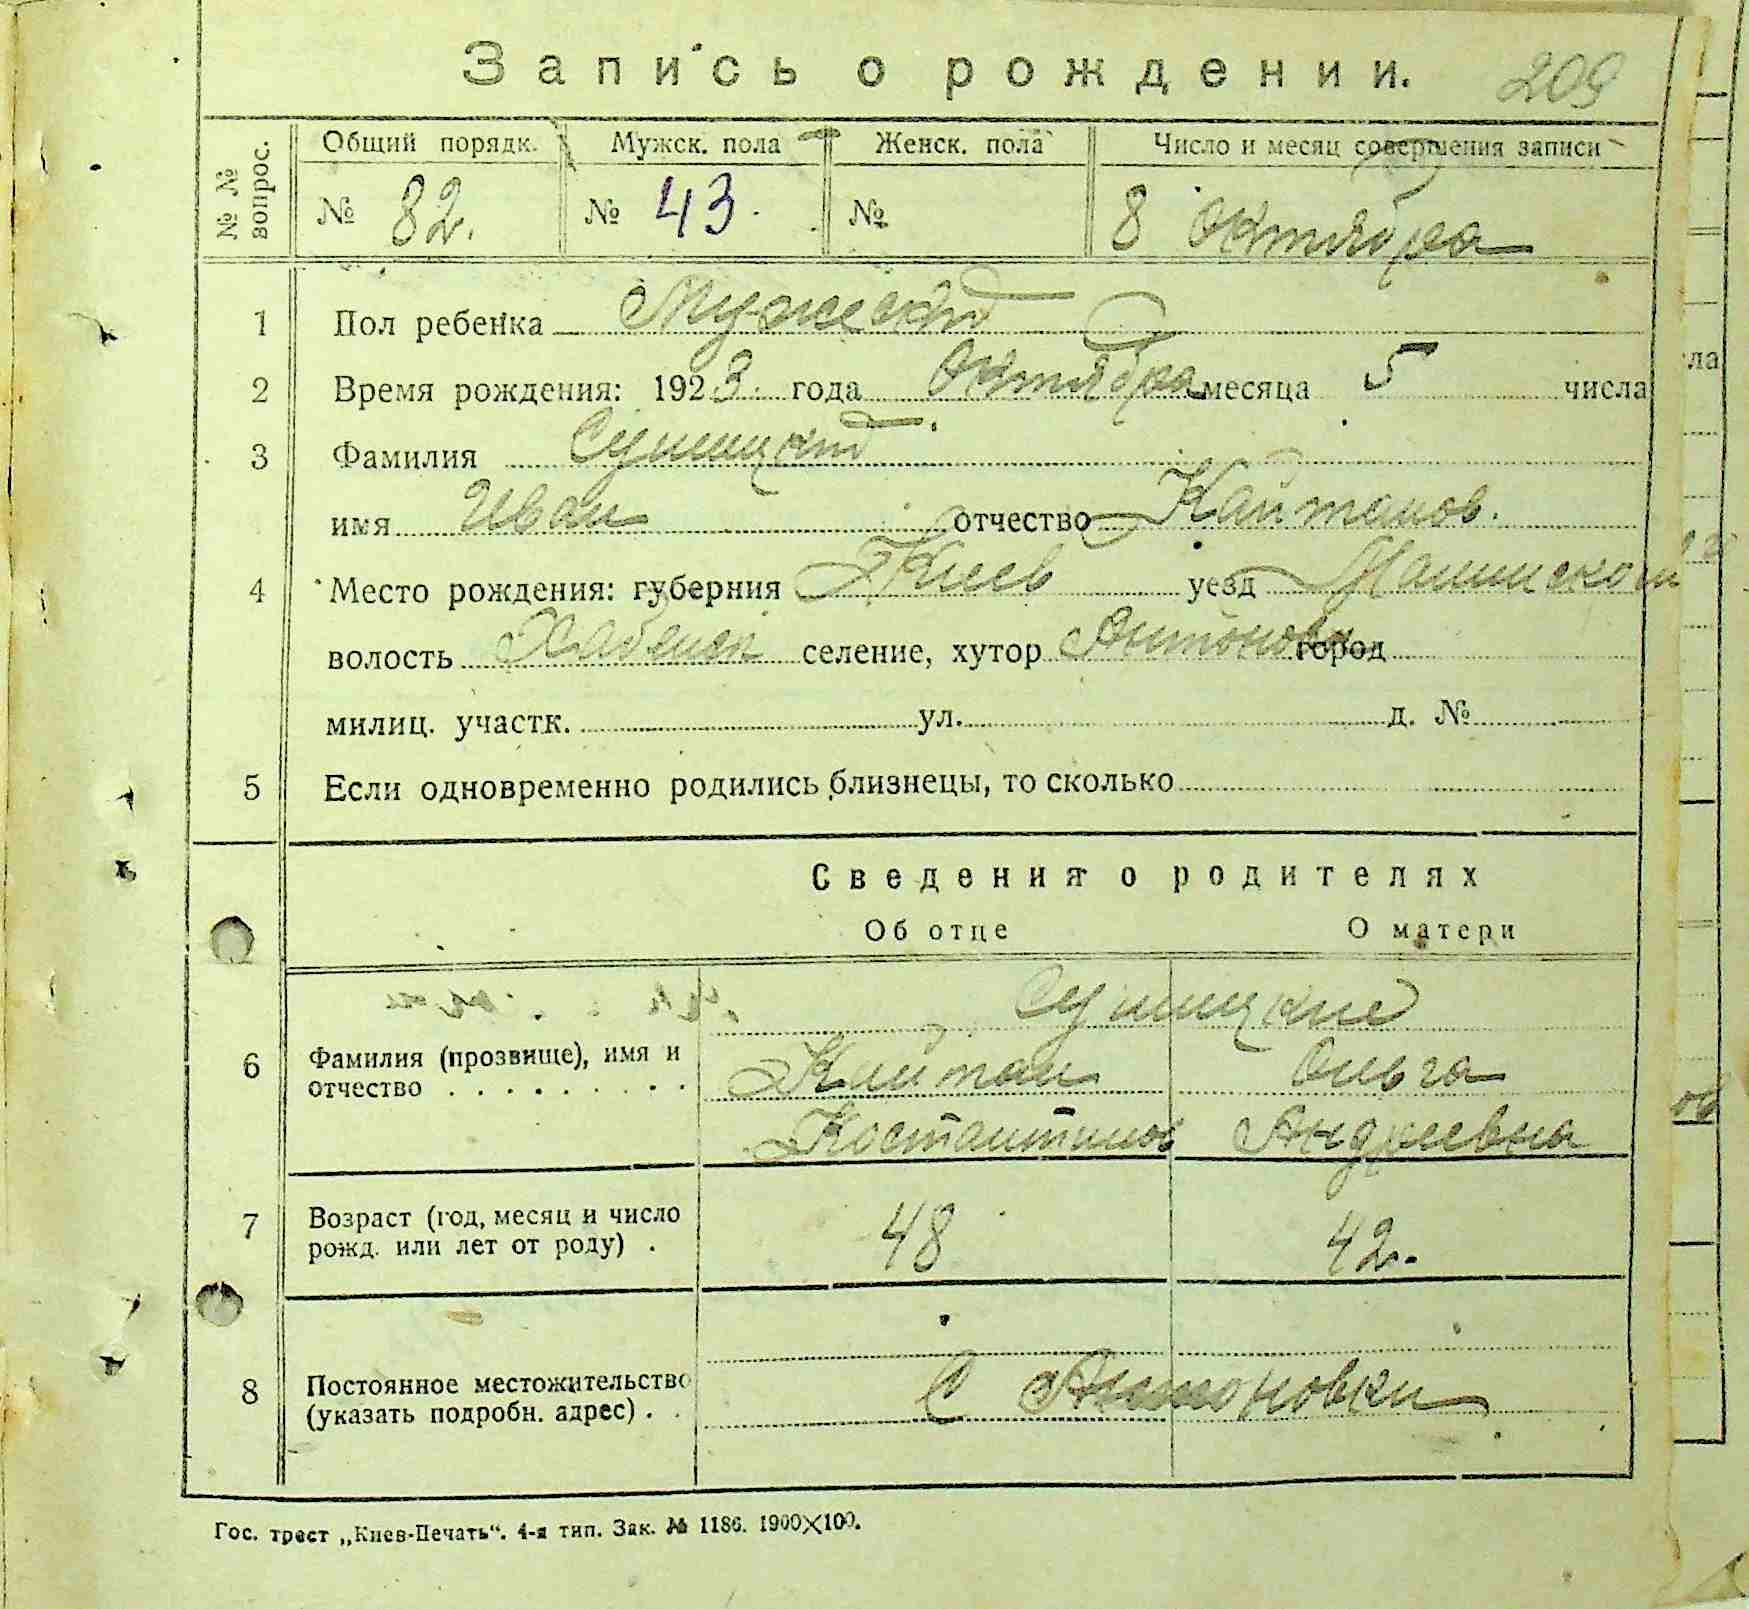 Запись о рождении. 209
№ № вопрос.
Общий порядк. Мужск. пола Женск. пола Число и месяц совершения записи
№ 82. № 43. № 8 Октября
1 Пол ребенка Мужский
2 Время рождения: 1923. года Октября месяца 5 числа
3 Фамилия Сушицкий
имя Иван отчество Кайтанов.
4 Место рождения: губерния Киев уезд
волость Хабенск селение, хутор Антоновка город
милиц. участк. ул. д. №
5 Если одновременно родились близнецы, то сколько
Сведения о родителях
Об отце О матери
Сушицкие
6 Фамилия (прозвище), имя и отчество . . . . . . . . .
Кайтан Ольга
Костантинов Андреевна
7 Возраст (год, месяц и число рожд. или лет от роду) . 48 42.
8 Постоянное местожительство (указать подробн. адрес) . . С Антоновки
Гос. трест „Киев-Печать“. 4-я тип. Зак. № 1186. 1900×100.